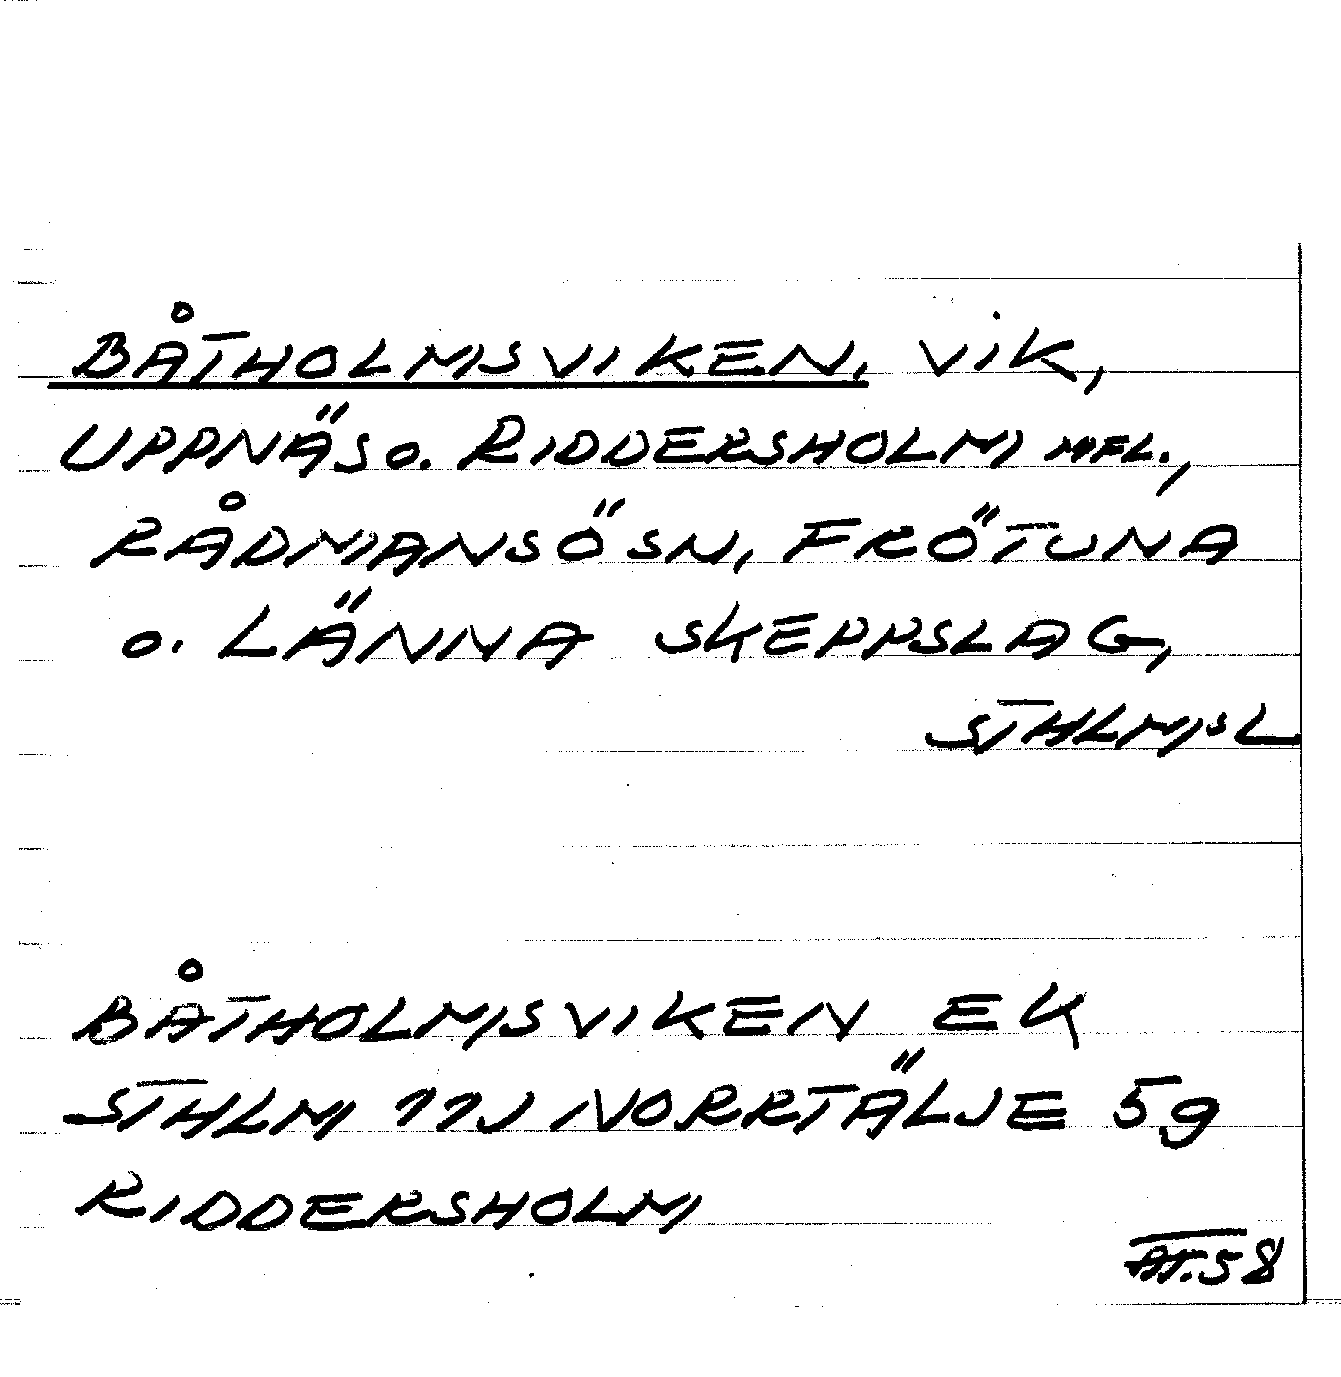 BÅTHOLMSVIKEN, VIK,
UPPNÄS O. RIDDERSHOLM MFL.,
RÅDMANSÖ SN, FRÖTUNA
O. LÄNNA SKEPPSLAG,
STHLMSL
BÅTHOLMSVIKEN EK
STHLM 11J NORRTÄLJE 5g
RIDDERSHOLM
AT.58